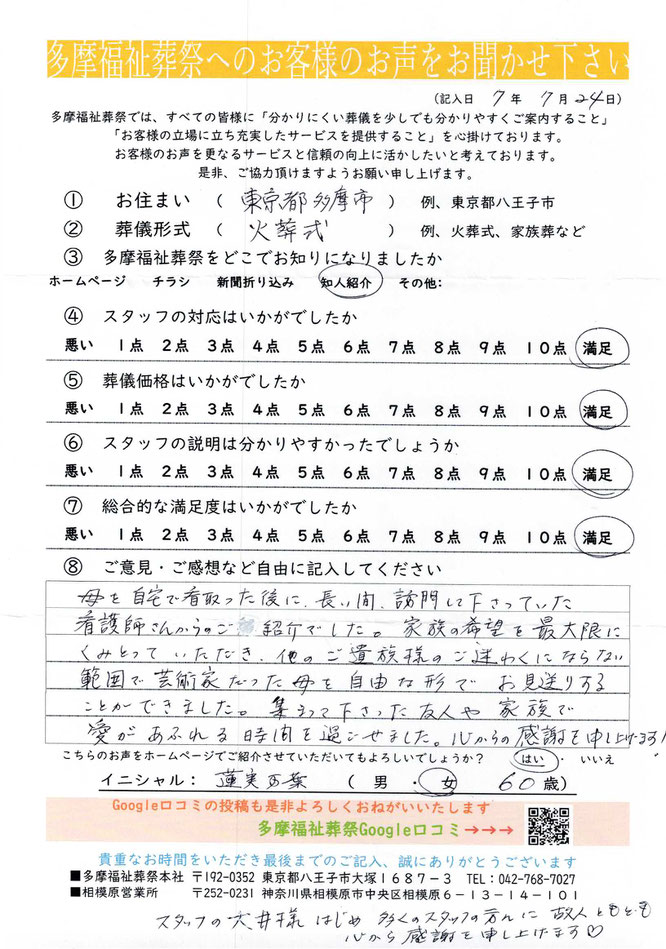 多摩福祉葬祭へのお客様のお声をお聞かせ下さい
(記入日 7年 7月24日)
多摩福祉葬祭では、すべての皆様に「分かりにくい葬儀を少しでも分かりやすくご案内すること」
「お客様の立場に立ち充実したサービスを提供すること」を心掛けております。
お客様のお声を更なるサービスと信頼の向上に活かしたいと考えております。
是非、ご協力頂けますようお願い申し上げます。
① お住まい (東京都多摩市) 例、東京都八王子市
② 葬儀形式 (火葬式) 例、火葬式、家族葬など
③ 多摩福祉葬祭をどこでお知りになりましたか
ホームページ チラシ 新聞折り込み 知人紹介 その他:
④ スタッフの対応はいかがでしたか
悪い 1点 2点 3点 4点 5点 6点 7点 8点 9点 10点 満足
⑤ 葬儀価格はいかがでしたか
悪い 1点 2点 3点 4点 5点 6点 7点 8点 9点 10点 満足
⑥ スタッフの説明は分かりやすかったでしょうか
悪い 1点 2点 3点 4点 5点 6点 7点 8点 9点 10点 満足
⑦ 総合的な満足度はいかがでしたか
悪い 1点 2点 3点 4点 5点 6点 7点 8点 9点 10点 満足
⑧ ご意見・ご感想など自由に記入してください
母を自宅で看取った後に、長い間、訪問して下さっていた
看護師さんからのご紹介でした。家族の希望を最大限に
くみとっていただき、他のご遺族様のご迷わくにならない
範囲で芸術家だった母を自由な形でお見送りする
ことができました。集まって下さった友人や家族で
愛があふれる時間を過ごせました。心からの感謝を申し上げます!
こちらのお声をホームページでご紹介させていただいてもよろしいでしょうか? はい ・ いいえ
イニシャル: 蓮実 葉 ( 男 ・ 女 60歳)
Google口コミの投稿も是非よろしくおねがいいたします
多摩福祉葬祭Google口コミ→→→
貴重なお時間をいただき最後までのご記入、誠にありがとうございます
■多摩福祉葬祭本社 〒192-0352 東京都八王子市大塚1687-3 TEL:042-768-7027
■相模原営業所 〒252-0231 神奈川県相模原市中央区相模原6-13-14-101
スタッフの大井様はじめ 多くのスタッフの方々に 故人ともども
心から感謝を申し上げます♡